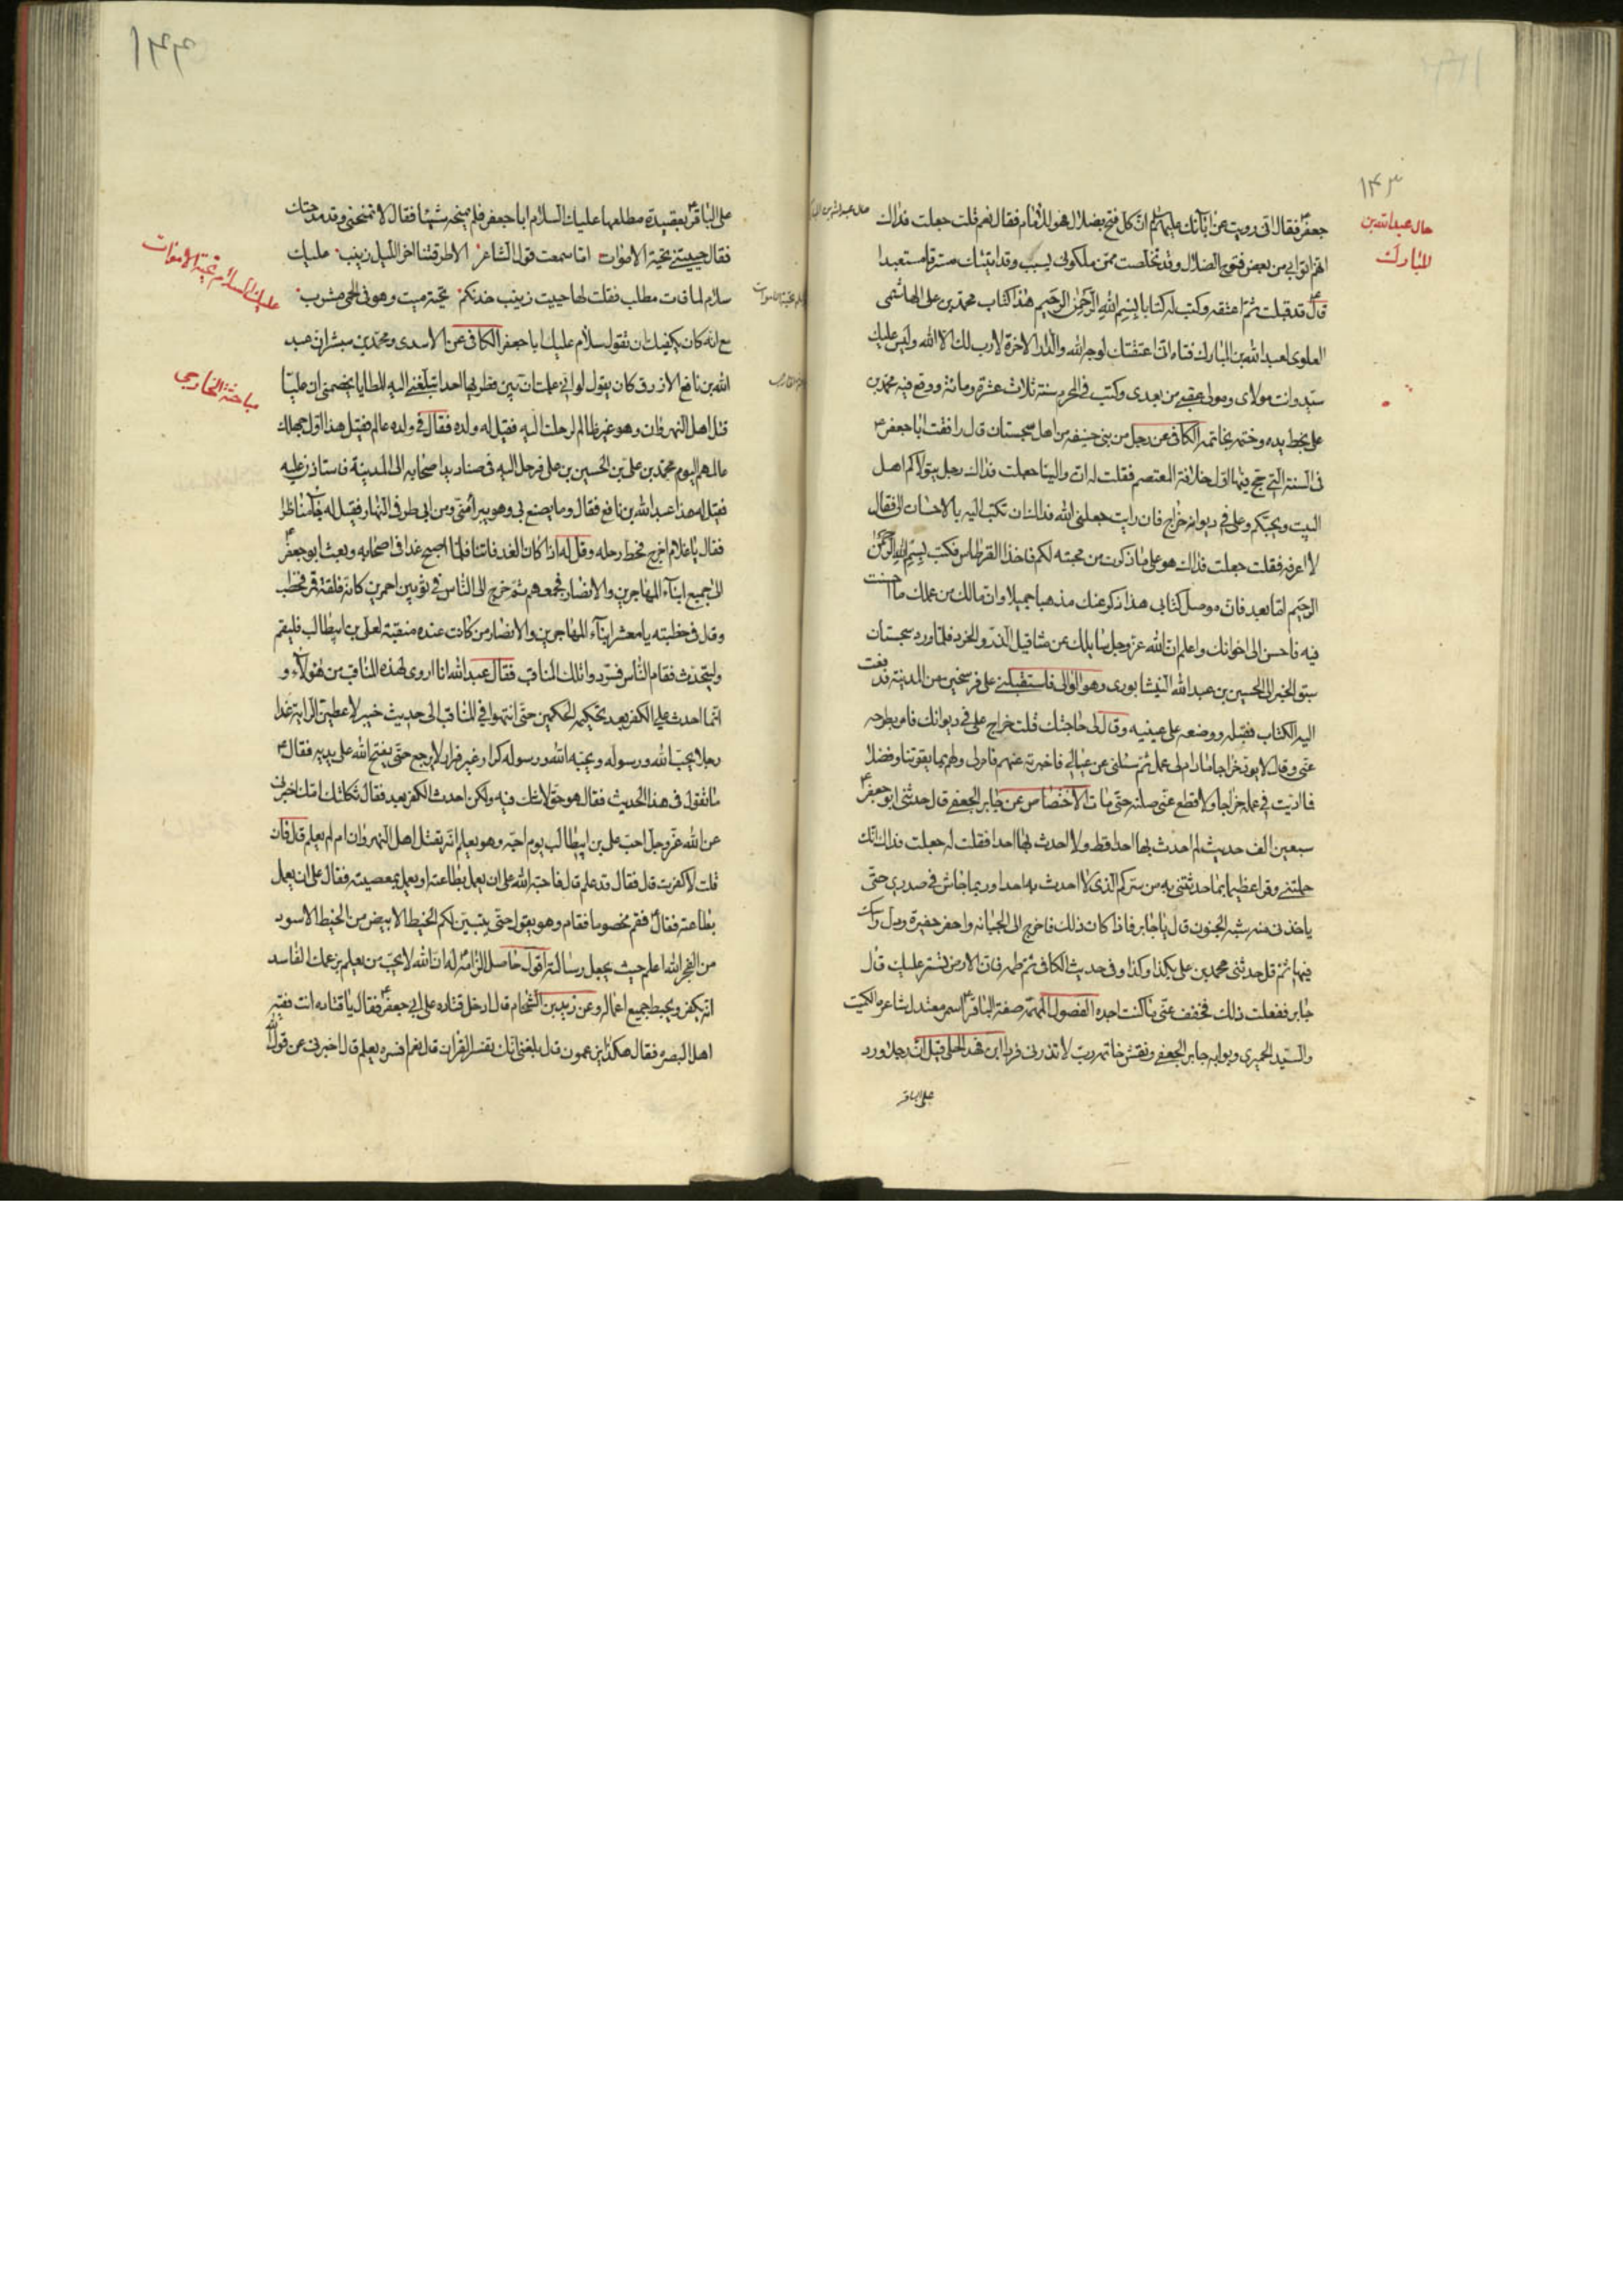 ۱۴۳
حال عبد الله بن
المبارك
جعفرؑ فقال انى رويت عن ابآئك عليهم السلام ان كل فتح بضلال فهو للامام فقال نعم قلت جعلت فداك
انهم اتوا بى من بعض فتوح الضلال وقد تخلصت ممن ملكونى بسبب وقد اتيتك مسترقا مستعبدا
قالؑ قد قبلت ثم اعتقه وكتب له كتابا بسم الله الرحمن الرحيم هذا كتاب محمد بن على الهاشمى
العلوى لعبد الله بن المبارك فتاه انى اعتقتك لوجه الله والدار الاخرة لا رب لك الا الله وليس عليك
سيد وانت مولاى ومولى عقبى من بعدى وكتب فى المحرم سنة ثلاث عشرة ومائة ووقع فيه محمد بن
على بخط يده وختمه بخاتمه الكافى عن رجل من بنى حنيفه من اهل سجستان قال رافقت ابا جعفرؑ
فى السنة التى حج فيها اول خلافة المعتصم فقلت له ان والينا جعلت فداك رجل يتولاكم اهل
البيت ويحبكم وعلى فى ديوانه خراج فان رايت جعلنى الله فداك ان تكتب اليه بالاحسان الى فقال
لا اعرفه فقلت جعلت فداك هو على ما ذكرت من محبته لكم فاخذ القرطاس فكتب بسم الله الرحمن
الرحيم اما بعد فان موصل كتابى هذا ذكر عنك مذهبا جميلا وان مالك من عملك ما احسنت
فيه فاحسن الى اخوانك واعلم ان الله عز وجل سايلك عن مثاقيل الذر والخرد فلما ورد سجستان
سبق الخبر الى الحسين بن عبد الله النيشابورى وهو الوالى فاستقبلنى على فرسخين من المدينة فدفعت
اليه الكتاب فقبله ووضعه على عينيه وقال لى حاجتك قلت خراج على فى ديوانك فامر بطرحه
عنى وقال لا يود خراجا ما دام لى عمل ثم سئلنى عن عيالى فاخبرته عنهم فامر لى ولهم بما يقوتنا وفضلا
فما اديت فى عمله خراجا ولا قطع عنى صلته حتى مات الاختصاص عن جابر الجعفى قال حدثنى ابو جعفرؑ
سبعين الف حديث لم احدث بها احدا قط ولا احدث بها احدا فقلت له جعلت فداك انك
حملتنى وقرا عظيما بما حدثتنى به من سركم الذى لا احدث به احدا وربما جاش فى صدرى حتى
ياخذنى منه شبه الجنون قال يا جابر فاذا كان ذلك فاخرج الى الجبانه واحفر حفيرة ودل راسك
فيها ثم قل حدثنى محمد بن على بكذا وكذا وفى حديث الكافى ثم طمه فان الارض تستر عليك قال
جابر ففعلت ذلك فخفف عنى ما كنت اجده الفصول المهمة صفة الباقرؑ اسمر معتدل شاعره الكميت
والسيد الحميرى وبوابه جابر الجعفى ونقش خاتمه رب لا تذرنى فردا ابن فهد الحلى قيل ان رجلا ورد
على الباقر
۱۴۴
على الباقرؑ بقصيدة مطلعها عليك السلام ابا جعفر فلم يمنحه شيئا فقال لا تمنحنى وقد مدحتك
فقال حييتنى تحية الاموات اما سمعت قول الشاعر الا طرقتنا اخر الليل زينب عليك
سلام لما فات مطلب فقلت لها حييت زينب خدنكم تحية ميت وهو فى الحى مشرب
مع انه كان يكفيك ان تقول سلام عليك ابا جعفر الكافى عن الاسدى ومحمد بن مبشر ان عبد
الله بن نافع الازرق كان يقول لو انى علمت ان بين قطريها احدا تبلغنى اليه المطايا يخصمنى ان عليا
قتل اهل النهروان وهو غير ظالم لرحلت اليه فقيل له ولده فقال فى ولده عالم فقيل هذا اول جهلك
عالمهم اليوم محمد بن على بن الحسين بن على فرحل اليه فى صناديد اصحابه الى المدينة فاستاذن عليه
فقيل له هذا عبد الله بن نافع فقال وما يصنع بى وهو يبرأ منى ومن ابى طرفى النهار فقيل له جآء مناظرا
فقال يا غلام اخرج فحط رحله وقل له اذا كان الغد فاتنا فلما اصبح غدا فى اصحابه وبعث ابو جعفرؑ
الى جميع ابنآء المهاجرين والانصار فجمعهم ثم خرج الى الناس فى ثوبين احمرين كانه فلقة قمر فخطب
وقال فى خطبته يا معشر ابنآء المهاجرين والانصار من كانت عنده منقبة لعلى بن ابيطالب فليقم
وليتحدث فقام الناس فسردوا تلك المناقب فقال عبد الله انا اروى لهذه المناقب من هؤلآء و
انما احدث على الكفر بعد تحكيمه الحكمين حتى انتهوا فى المناقب الى حديث خيبر لاعطين الراية غدا
رجلا يحب الله ورسوله ويحبه الله ورسوله كرار غير فرار لا يرجع حتى يفتح الله على يديه فقالؑ
ما تقول فى هذا الحديث فقال هو حق لا شك فيه ولكن احدث الكفر بعد فقال ثكلتك امك اخبرنى
عن الله عز وجل احب على بن ابيطالب يوم احبه وهو يعلم انه يقتل اهل النهروان ام لم يعلم قال فان
قلت لا كفرت قال فقال قد علم قال فاحبه الله على ان يعمل بطاعته او يعمل بمعصيته فقال على ان يعمل
بطاعته فقالؑ فقم مخصوما فقام وهو يقول حتى يتبين لكم الخيط الابيض من الخيط الاسود
من الفجر الله اعلم حيث يجعل رسالته اقول حاصل الزامه له ان الله لا يحب من يعلم بزعمك الفاسد
انه يكفر ويحبط جميع اعماله وعن زيد بن الشحام قال دخل قتاده على ابى جعفرؑ فقال يا قتاده انت فقيه
اهل البصره فقال هكذا يزعمون قال بلغنى انك تفسر القران قال نعم افسره بعلم قال اخبرنى عن قول الله
عليك السلام تحية الاموات
مباحثة الخارجى